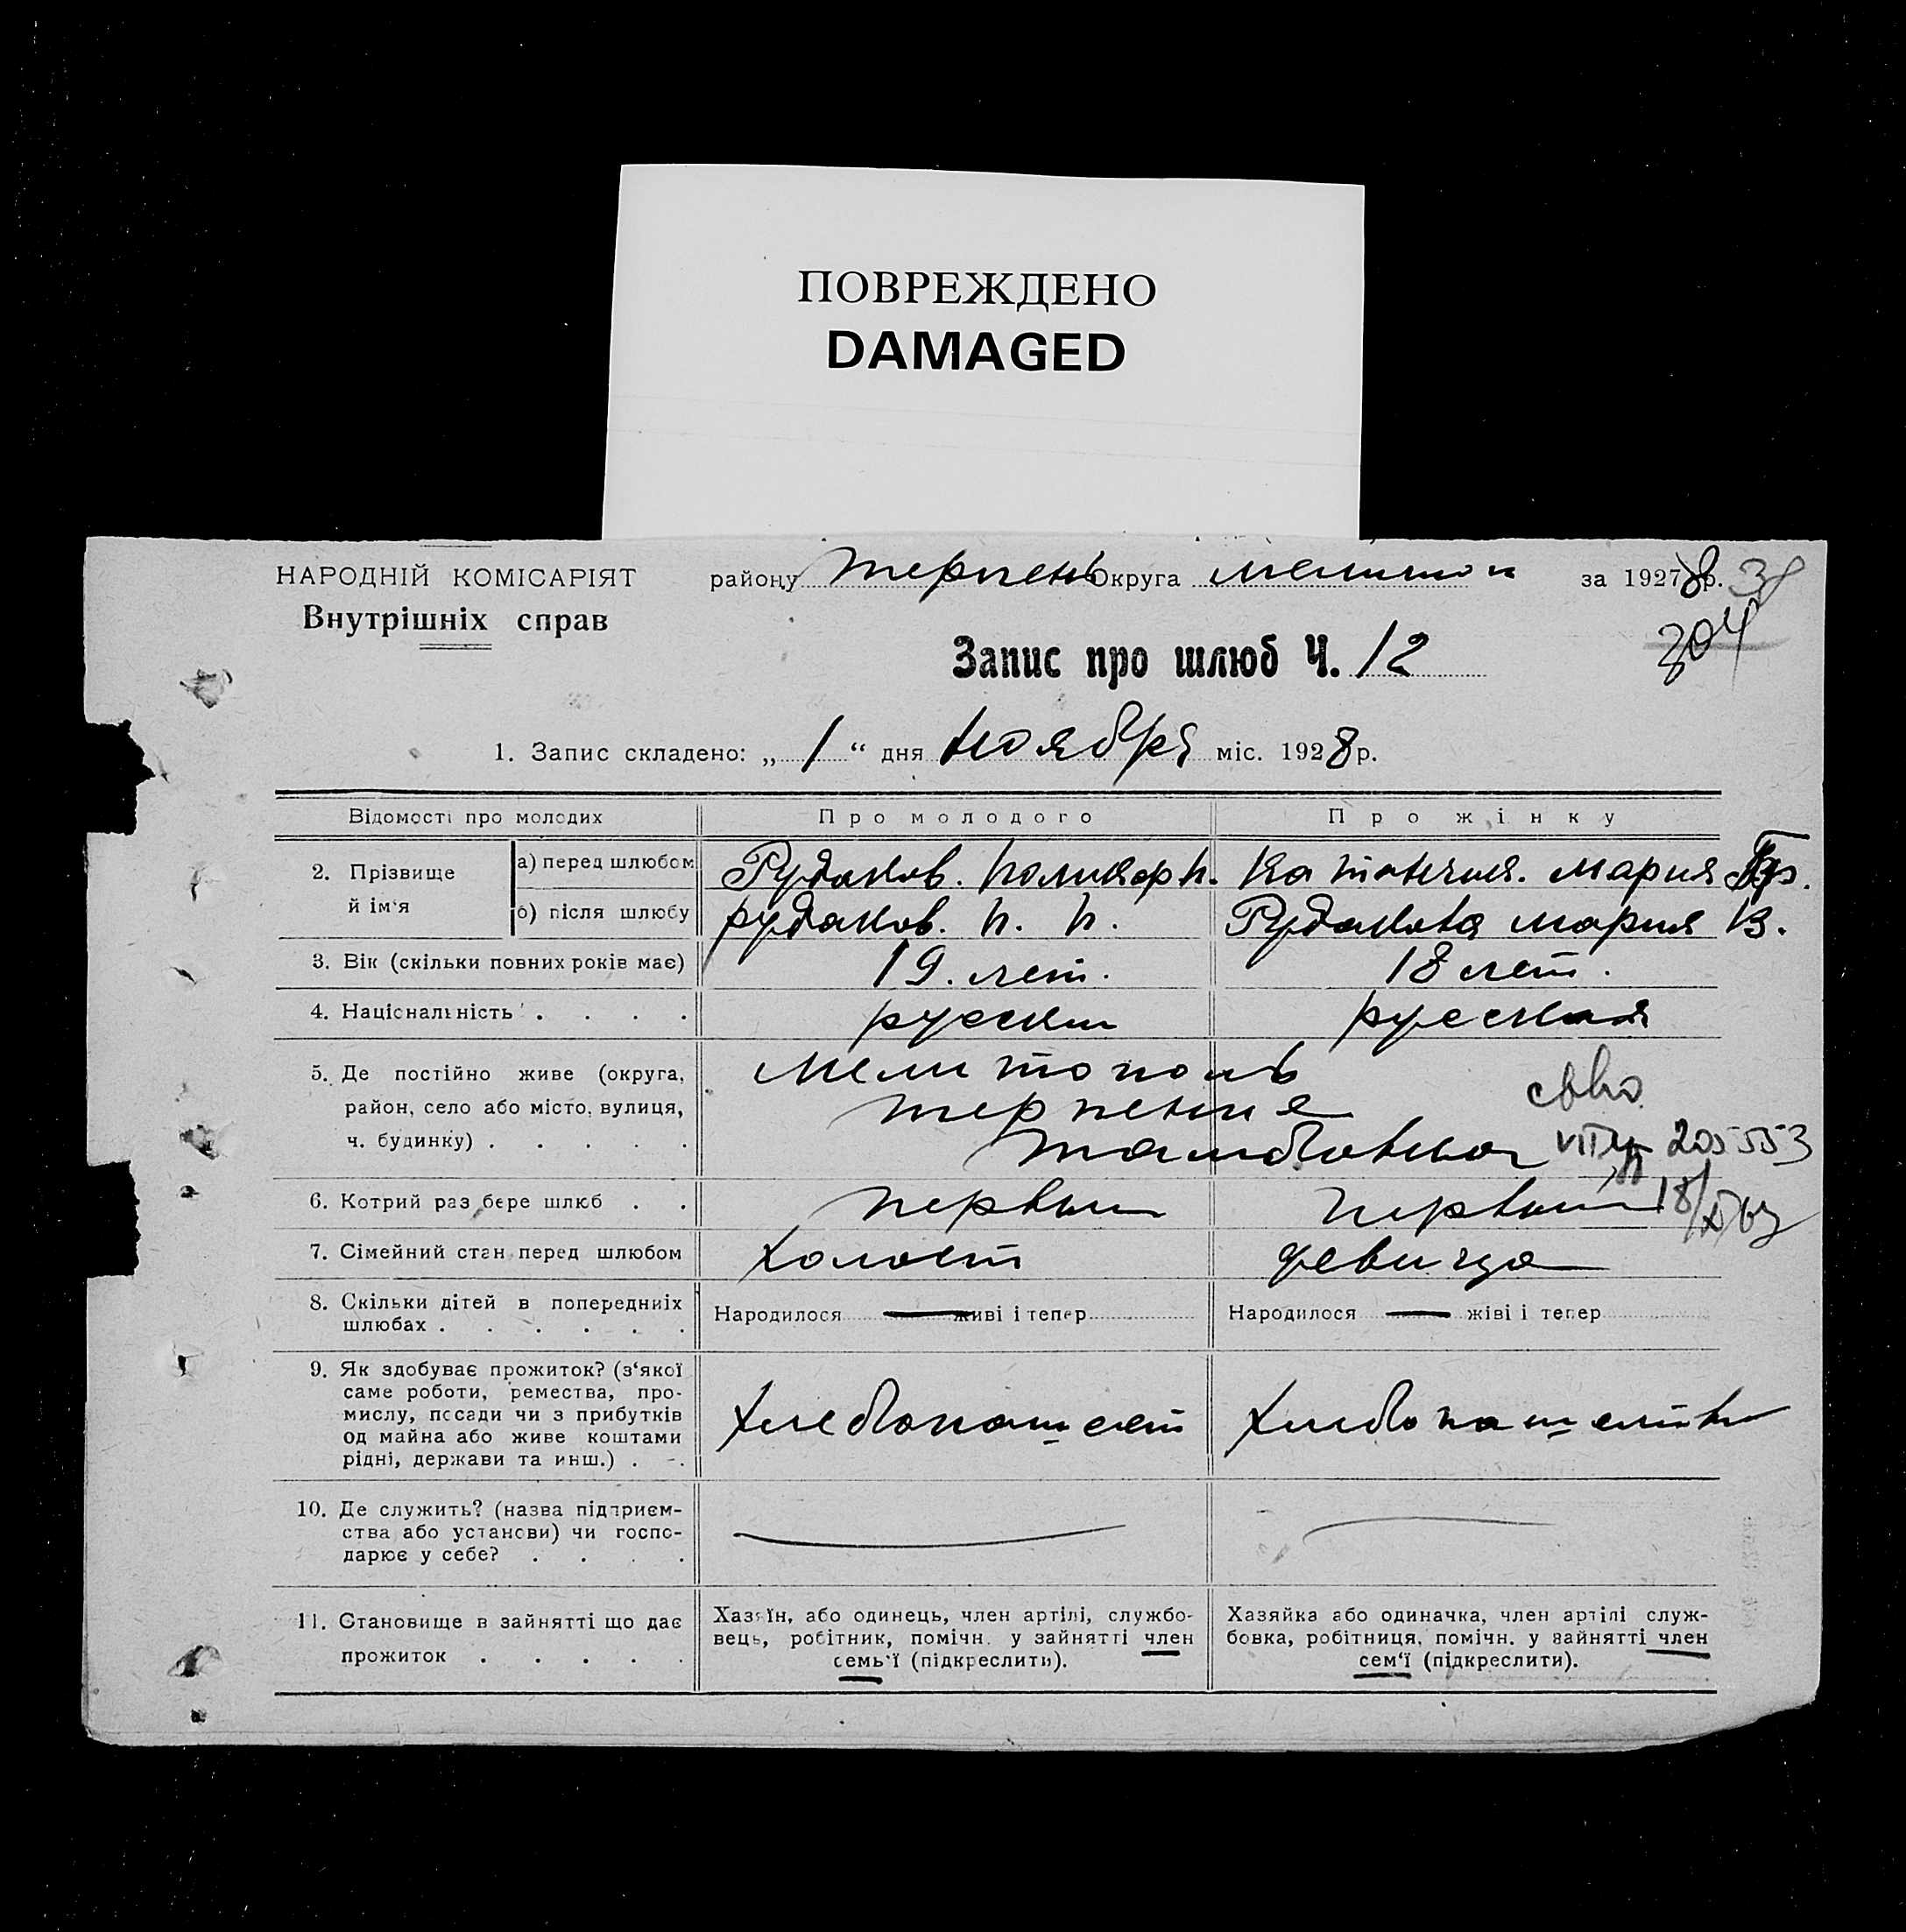 ПОВРЕЖДЕНО
DAMAGED
НАРОДНІЙ КОМІСАРІЯТ
Внутрішніх справ
району Терпень Округа Мелитоп за 1928 р. 38
304
Запис про шлюб Ч. 12
1. Запис складено: „ 1 “ дня Ноября міс. 1928 р.
Відомості про молодих Про молодого Про жінку
2. Прізвище й ім'я а) перед шлюбом Рудаков. Поликарп. Мария
б) після шлюбу Рудаков. П. П. Рудакова Мария В.
3. Вік (скільки повних років має) 19. лет. 18 лет.
4. Національність . . . . русский русская
5. Де постійно живе (округа, Мелитополь
район, село або місто, вулиця, Терпение
ч. будинку) . . . . . Тамбовская 205553
6. Котрий раз бере шлюб . . первый первый 18/
7. Сімейний стан перед шлюбом холост девица
8. Скільки дітей в попередниіх
шлюбах . . . . . . Народилося — живі і тепер Народилося — жіві і тепер
9. Як здобуває прожиток? (з'якої
саме роботи, ремества, про-
мислу, посади чи з прибутків
од майна або живе коштами
рідні, держави та инш.) . . хлебопашест хлебопашеств
10. Де служить? (назва підприєм-
ства або установи) чи госпо-
дарює у себе? . . . .
11. Становище в зайнятті що дає
прожиток . . . . .
Хазяїн, або одинець, член артілі, службо-
вець, робітник, помічн. у зайнятті член
семь'ї (підкреслити).
Хазяйка або одиначка, член артілі служ-
бовка, робітниця, помічн. у зайнятті член
сем'ї (підкреслити).